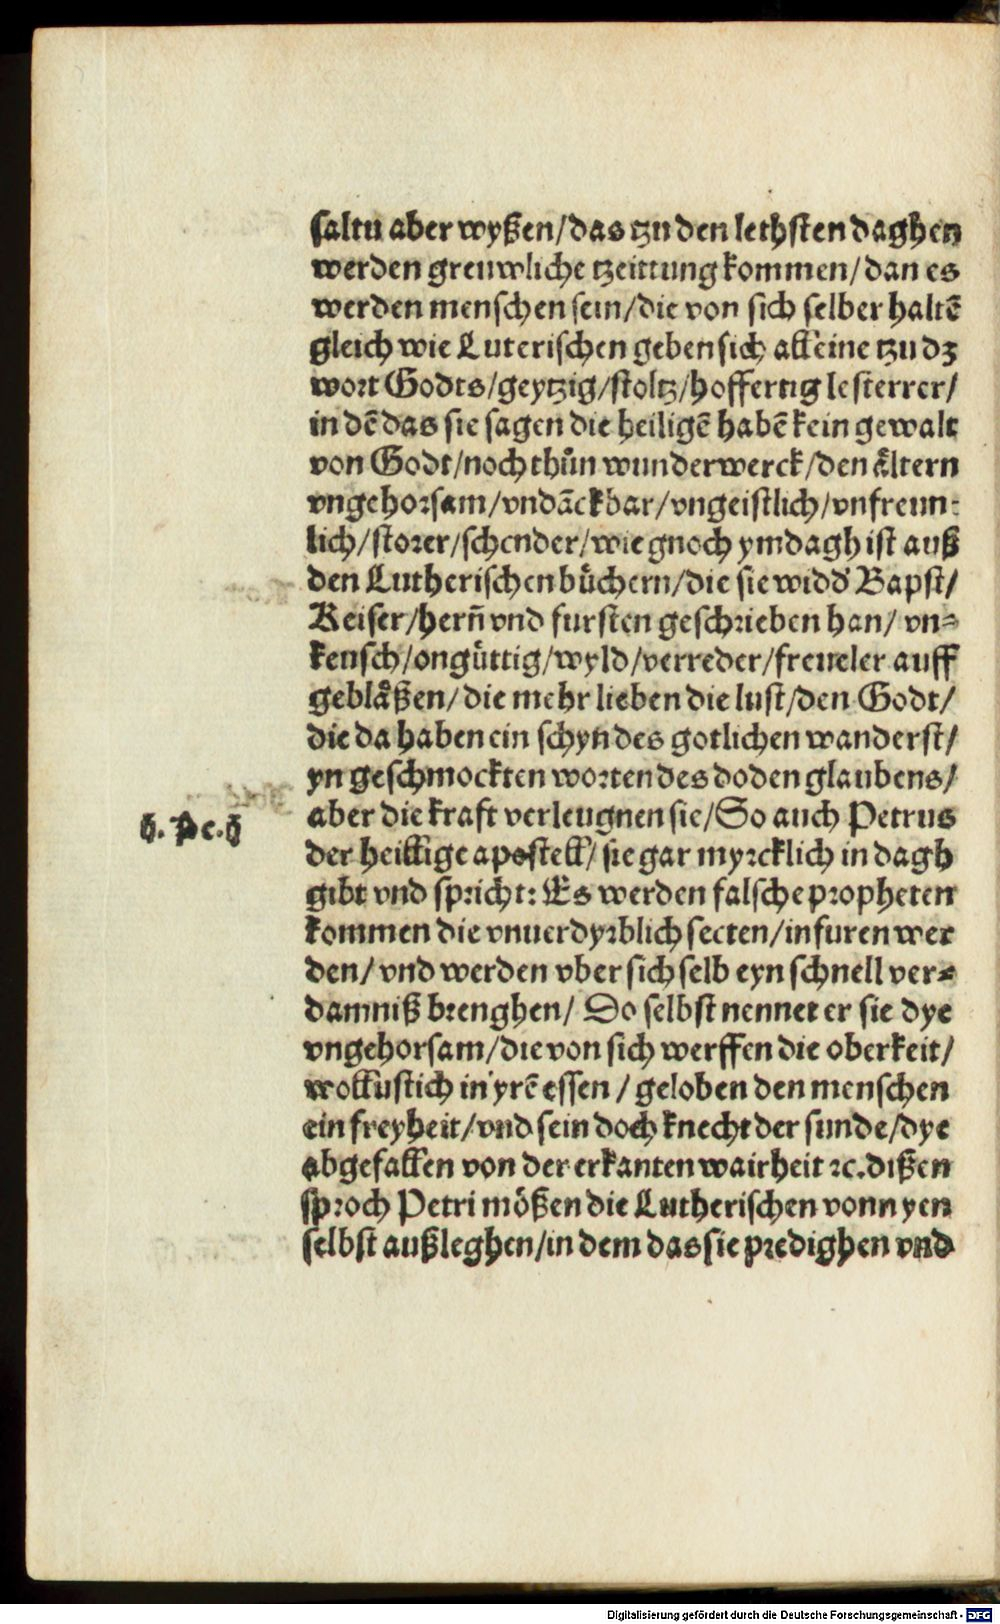 saltu aber wyßen/das tzu den lethsten daghen
werden greuwliche tzeittung kommen/dan es
werden menschen sein/die von sich selber haltē
gleich wie Luterischen geben sich alleine tzu dz
wort Godts/geytzig/stoltz/hoffertig lesterrer/
in dē das sie sagen die heiligē habē kein gewalt
von Godt/noch thůn wunderwerck/den åltern
vngehorsam/vndāckbar/vngeistlich/vnfreun-
lich/storer/schender/wie gnoch ym dagh ist auß
den Lutherischen bůchern/die sie widd' Bapst/
Keiser/hern̄ vnd fursten geschrieben han/ vn-
keusch/ongůttig/wyld/verreder/freueler auff
geblåßen/die mehr lieben die lust/den Godt/
die da haben ein schyn des gotlichen wanderst/
yn geschmockten worten des doden glaubens/
aber die kraft verleugnen sie/So auch Petrus
der heillige apostell/ sie gar myrcklich in dagh
gibt vnd spricht: Es werden falsche propheten
kommen die vnuerdyrblich secten/infuren wer
den/ vnd werden vber sich selb eyn schnell ver-
damniß brenghen/ Do selbst nennet er sie dye
vngehorsam/die von sich werffen die oberkeit/
wollustich in yrē essen / geloben den menschen
ein freyheit/vnd sein doch knecht der sunde/dye
abgefallen von der erkanten wairheit ꝛc. dißen
sproch Petri mößen die Lutherischen vonn yen
selbst außleghen/in dem das sie predighen vnd
Digitalisierung gefördert durch die Deutsche Forschungsgemeinschaft - DFG